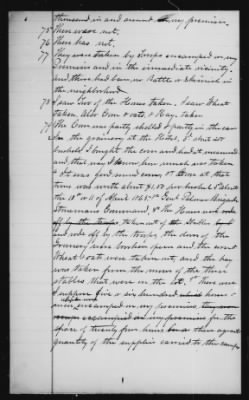 thousand in and around my premises.
75 There were not.
76 There has not.
77 They were taken by troops encamped on my
premises and in the immediate vicinity.
And there had been no Battle or skirmish in
the neighborhood.
78 I saw two of the Horses taken. I saw Wheat
taken, also Corn & oats, & Hay, taken
79 The Corn was partly shelled & partly in the ear
in the graineries at the Hotel, I had
bushels I bought the corn and had it measured
and that way I know how much was taken
It was good sound corn, Corn at that
time was worth about $1.50 per bushel. About
the 10th or 11 of April 1865. Genl Palmer Brigade
Stonemans Command, & the Horses
off by the troops taken out of the stables
and rode off by the troops, the doors of the
were broken open and the corn
Wheat & oats were taken out, and the hay
was taken from the mow of the three
stables that were on the lot. There were
I suppose five or six hundred horse
men encamped on my premises,
encamped on my premises for the
space of twenty four hours or there
quantity of the supplies carried to the camps